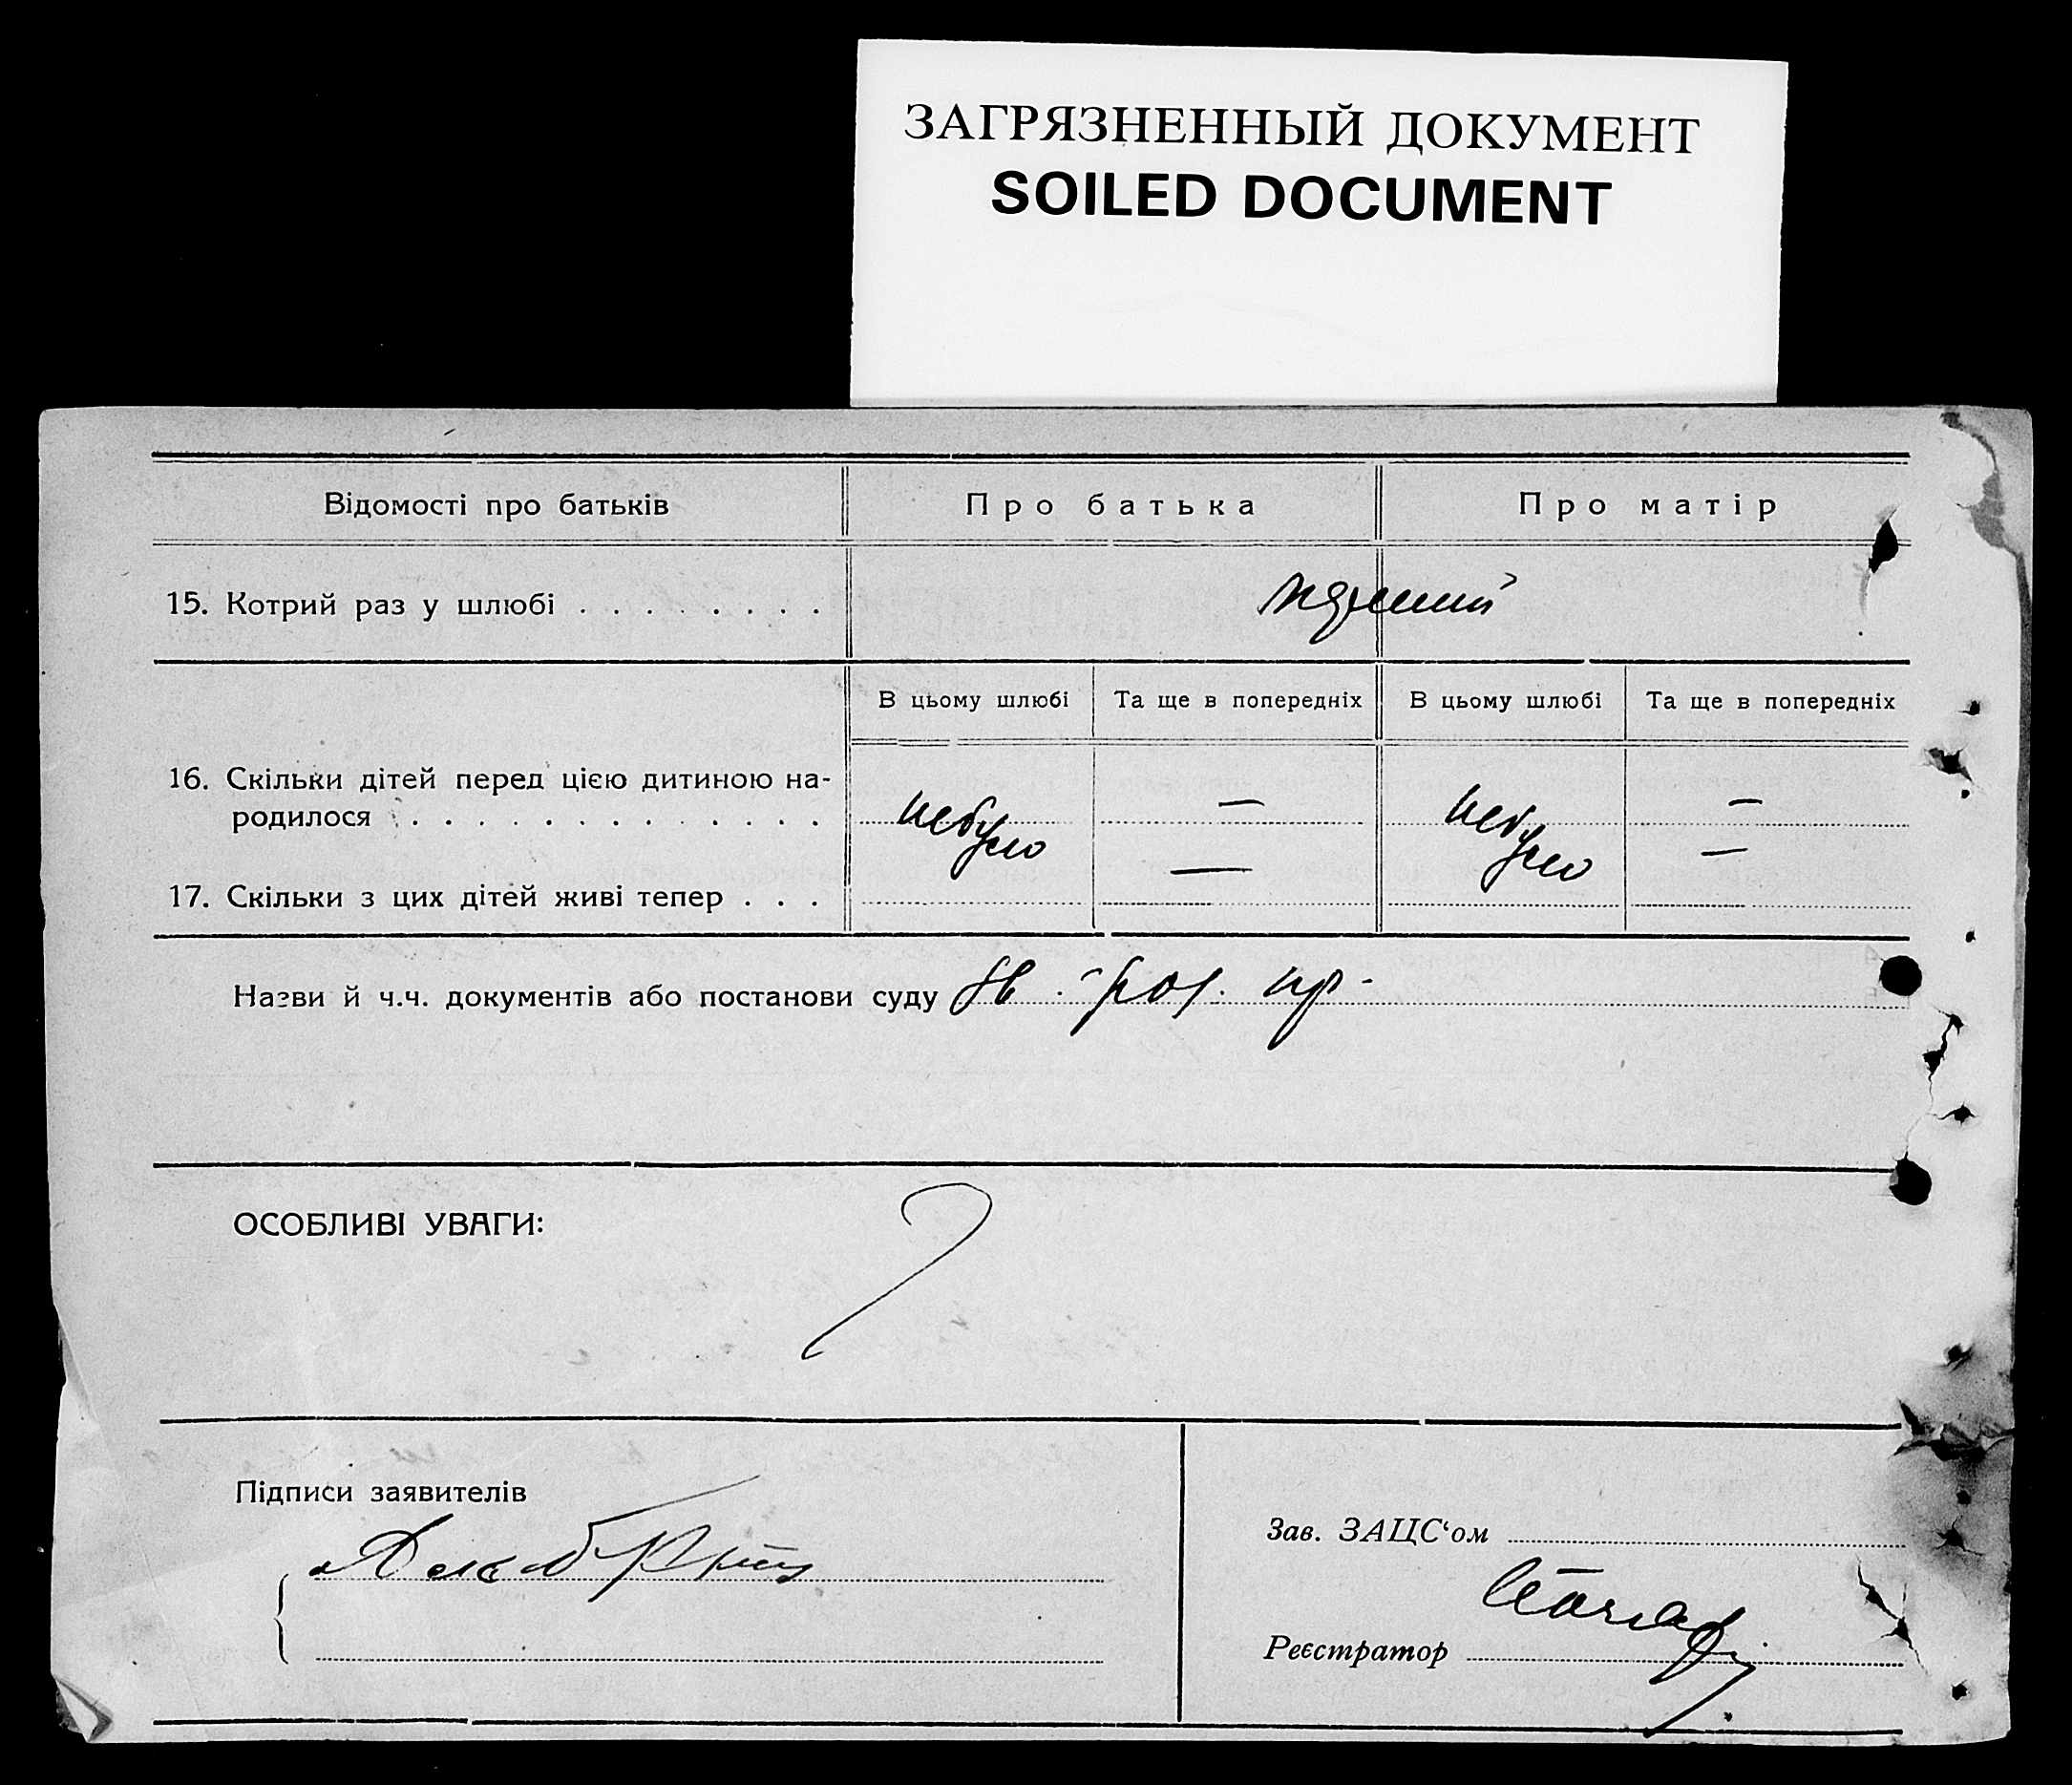 ЗАГРЯЗНЕННЫЙ ДОКУМЕНТ
SOILED DOCUMENT
Відомості про батьків Про батька Про матір
15. Котрий раз у шлюбі . . . . . . . .
В цьому шлюбі Та ще в попередніх В цьому шлюбі Та ще в попередніх
16. Скільки дітей перед цією дитиною на-
родилося . . . . . . . . . . . . . небуло — небуло —
17. Скільки з цих дітей живі тепер . . . — —
Назви й ч.ч. документів або постанови суду
ОСОБЛИВІ УВАГИ:
Підписи заявителів
Зав. ЗАЦС‘ом
Реєстратор